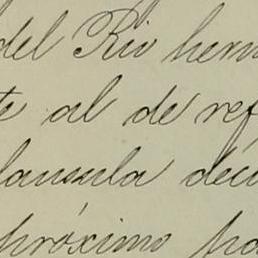 del Rio herm
te al de ref
lausula déci
próximo pa